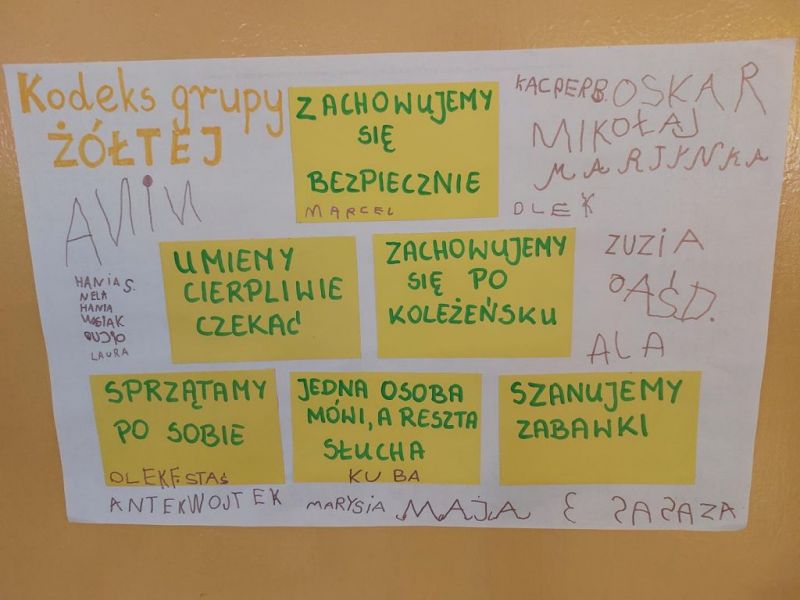 Kodeks grupy
ŻÓŁTEJ
ZACHOWUJEMY
SIĘ
BEZPIECZNIE
MARCEL
KACPER B. OSKAR
MIKOŁAJ
MARJYNKA
OLEK
UMIEMY
CIERPLIWIE
CZEKAĆ
ZACHOWUJEMY
SIĘ PO
KOLEŻEŃSKU
ZUZIA
ALA
HANIA S.
NELA
HANIA
LAURA
SPRZĄTAMY
PO SOBIE
OLEK F. STAŚ
JEDNA OSOBA
MÓWI, A RESZTA
SŁUCHA
KUBA
SZANUJEMY
ZABAWKI
ANTEK WOJTEK MARYSIA MAJA